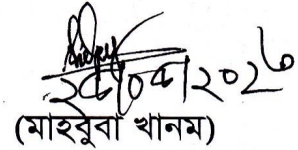 ২৫/০৫/২০২৬
(মাহবুবা খানম)